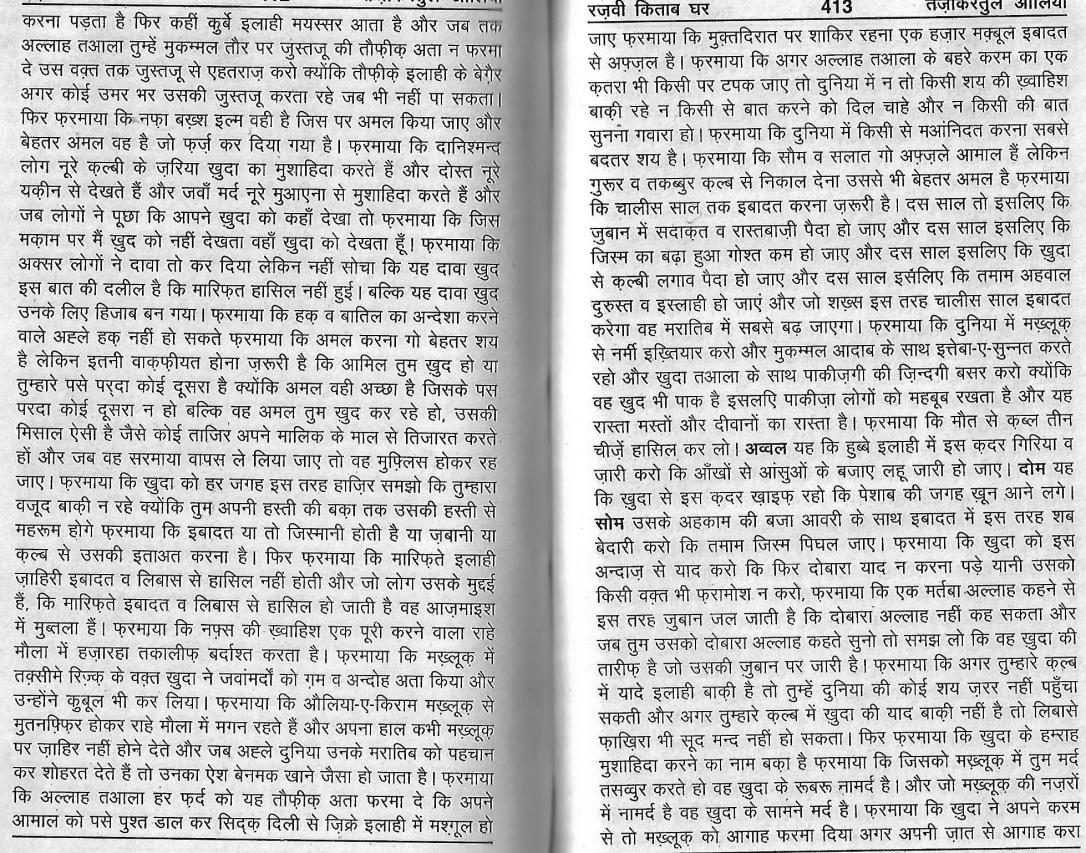 करना पड़ता है फिर कहीं क़ुर्बे इलाही मयस्सर आता है और जब तक
अल्लाह तआला तुम्हें मुकम्मल तौर पर जुस्तजू की तौफ़ीक़ अता न फ़रमा
दे उस वक़्त तक जुस्तजू से एहतराज़ करो क्योंकि तौफ़ीक़े इलाही के बेग़ैर
अगर कोई उमर भर उसकी जुस्तजू करता रहे जब भी नहीं पा सकता।
फिर फ़रमाया कि नफ़ा बख़्श इल्म वही है जिस पर अमल किया जाए और
बेहतर अमल वह है जो फ़र्ज़ कर दिया गया है। फ़रमाया कि दानिश्मन्द
लोग नूरे क़ल्बी के ज़रिया ख़ुदा का मुशाहिदा करते हैं और दोस्त नूरे
यक़ीन से देखते हैं और जवाँ मर्द नूरे मुआएना से मुशाहिदा करते हैं और
जब लोगों ने पूछा कि आपने ख़ुदा को कहाँ देखा तो फ़रमाया कि जिस
मक़ाम पर मैं ख़ुद को नहीं देखता वहाँ ख़ुदा को देखता हूँ। फ़रमाया कि
अक्सर लोगों ने दावा तो कर दिया लेकिन नहीं सोचा कि यह दावा ख़ुद
इस बात की दलील है कि मारिफ़त हासिल नहीं हुई। बल्कि यह दावा ख़ुद
उनके लिए हिजाब बन गया। फ़रमाया कि हक़ व बातिल का अन्देशा करने
वाले अह्ले हक़ नहीं हो सकते फ़रमाया कि अमल करना गो बेहतर शय
है लेकिन इतनी वाक़फ़ीयत होना ज़रूरी है कि आमिल तुम ख़ुद हो या
तुम्हारे पसे पर्‌दा कोई दूसरा है क्योंकि अमल वही अच्छा है जिसके पस
परदा कोई दूसरा न हो बल्कि वह अमल तुम ख़ुद कर रहे हो, उसकी
मिसाल ऐसी है जैसे कोई ताजिर अपने मालिक के माल से तिजारत करते
हों और जब वह सरमाया वापस ले लिया जाए तो वह मुफ़्लिस होकर रह
जाए। फ़रमाया कि ख़ुदा को हर जगह इस तरह हाज़िर समझो कि तुम्हारा
वजूद बाक़ी न रहे क्योंकि तुम अपनी हस्ती की बक़ा तक उसकी हस्ती से
महरूम होगे फ़रमाया कि इबादत या तो जिस्मानी होती है या ज़बानी या
क़ल्ब से उसकी इताअत करना है। फिर फ़रमाया कि मारिफ़ते इलाही
ज़ाहिरी इबादत व लिबास से हासिल नहीं होती और जो लोग उसके मुद्दई
हैं, कि मारिफ़ते इबादत व लिबास से हासिल हो जाती है वह आज़माइश
में मुब्तला हैं। फ़रमाया कि नफ़्स की ख़्वाहिश एक पूरी करने वाला राहे
मौला में हज़ारहा तकालीफ़ बर्दाश्त करता है। फ़रमाया कि मख़्लूक़ में
तक़्सीमे रिज़्क़ के वक़्त ख़ुदा ने जवांमर्दों को ग़म व अन्दोह अता किया और
उन्होंने क़ुबूल भी कर लिया। फ़रमाया कि औलिया-ए-किराम मख़्लूक़ से
मुतनफ़्फ़िर होकर राहे मौला में मगन रहते हैं और अपना हाल कभी मख़्लूक़
पर ज़ाहिर नहीं होने देते और जब अह्ले दुनिया उनके मरातिब को पहचान
कर शोहरत देते हैं तो उनका ऐश बेनमक खाने जैसा हो जाता है। फ़रमाया
कि अल्लाह तआला हर फ़र्द को यह तौफ़ीक़ अता फरमा दे कि अपने
आमाल को पसे पुश्त डाल कर सिद्क़ दिली से ज़िक्रे इलाही में मश्ग़ूल हो
रज़वी किताब घर 413 तज़किरतुल औलिया
जाए फ़रमाया कि मुक़्तदिरात पर शाकिर रहना एक हज़ार मक़्बूल इबादत
से अफ़्ज़ल है। फ़रमाया कि अगर अल्लाह तआला के बहरे करम का एक
क़तरा भी किसी पर टपक जाए तो दुनिया में न तो किसी शय की ख़्वाहिश
बाक़ी रहे न किसी से बात करने को दिल चाहे और न किसी की बात
सुनना गवारा हो। फ़रमाया कि दुनिया में किसी से मआंनिदत करना सबसे
बदतर शय है। फ़रमाया कि सौम व सलात गो अफ़्ज़ले आमाल हैं लेकिन
गुरूर व तकब्बुर क़ल्ब से निकाल देना उससे भी बेहतर अमल है फ़रमाया
कि चालीस साल तक इबादत करना ज़रूरी है। दस साल तो इसलिए कि
ज़ुबान में सदाक़त व रास्तबाज़ी पैदा हो जाए और दस साल इसलिए कि
जिस्म का बढ़ा हुआ गोश्त कम हो जाए और दस साल इसलिए कि ख़ुदा
से क़ल्बी लगाव पैदा हो जाए और दस साल इसलिए कि तमाम अहवाल
दुरुस्त व इस्लाही हो जाएं और जो शख़्स इस तरह चालीस साल इबादत
करेगा वह मरातिब में सबसे बढ़ जाएगा। फ़रमाया कि दुनिया में मख़्लूक़
से नर्मी इख़्तियार करो और मुकम्मल आदाब के साथ इत्तेबा-ए-सुन्नत करते
रहो और ख़ुदा तआला के साथ पाकीज़गी की ज़िन्दगी बसर करो क्योंकि
वह ख़ुद भी पाक है इसलएि पाकीज़ा लोगों को महबूब रखता है और यह
रास्ता मस्तों और दीवानों का रास्ता है। फ़रमाया कि मौत से क़ब्ल तीन
चीज़ें हासिल कर लो। अव्वल यह कि हुब्बे इलाही में इस क़दर गिरिया व
ज़ारी करो कि आँखों से आंसुओं के बजाए लहू जारी हो जाए। दोम यह
कि ख़ुदा से इस क़दर ख़ाइफ़ रहो कि पेशाब की जगह ख़ून आने लगे।
सोम उसके अहकाम की बजा आवरी के साथ इबादत में इस तरह शब
बेदारी करो कि तमाम जिस्म पिघल जाए। फ़रमाया कि ख़ुदा को इस
अन्दाज़ से याद करो कि फिर दोबारा याद न करना पड़े यानी उसको
किसी वक़्त भी फ़रामोश न करो, फ़रमाया कि एक मर्तबा अल्लाह कहने से
इस तरह ज़ुबान जल जाती है कि दोबारा अल्लाह नहीं कह सकता और
जब तुम उसको दोबारा अल्लाह कहते सुनो तो समझ लो कि वह ख़ुदा की
तारीफ़ है जो उसकी ज़ुबान पर जारी है। फ़रमाया कि अगर तुम्हारे क़ल्ब
में यादे इलाही बाक़ी है तो तुम्हें दुनिया की कोई शय ज़रर नहीं पहुँचा
सकती और अगर तुम्हारे क़ल्ब में ख़ुदा की याद बाक़ी नहीं है तो लिबासे
फ़ाख़िरा भी सूद मन्द नहीं हो सकता। फिर फ़रमाया कि ख़ुदा के हमराह
मुशाहिदा करने का नाम बक़ा है फ़रमाया कि जिसको मख़्लूक़ में तुम मर्द
तसव्वुर करते हो वह ख़ुदा के रूबरू नामर्द है। और जो मख़्लूक़ की नज़रों
में नामर्द है वह ख़ुदा के सामने मर्द है। फ़रमाया कि ख़ुदा ने अपने करम
से तो मख़्लूक़ को आगाह फरमा दिया अगर अपनी ज़ात से आगाह करा